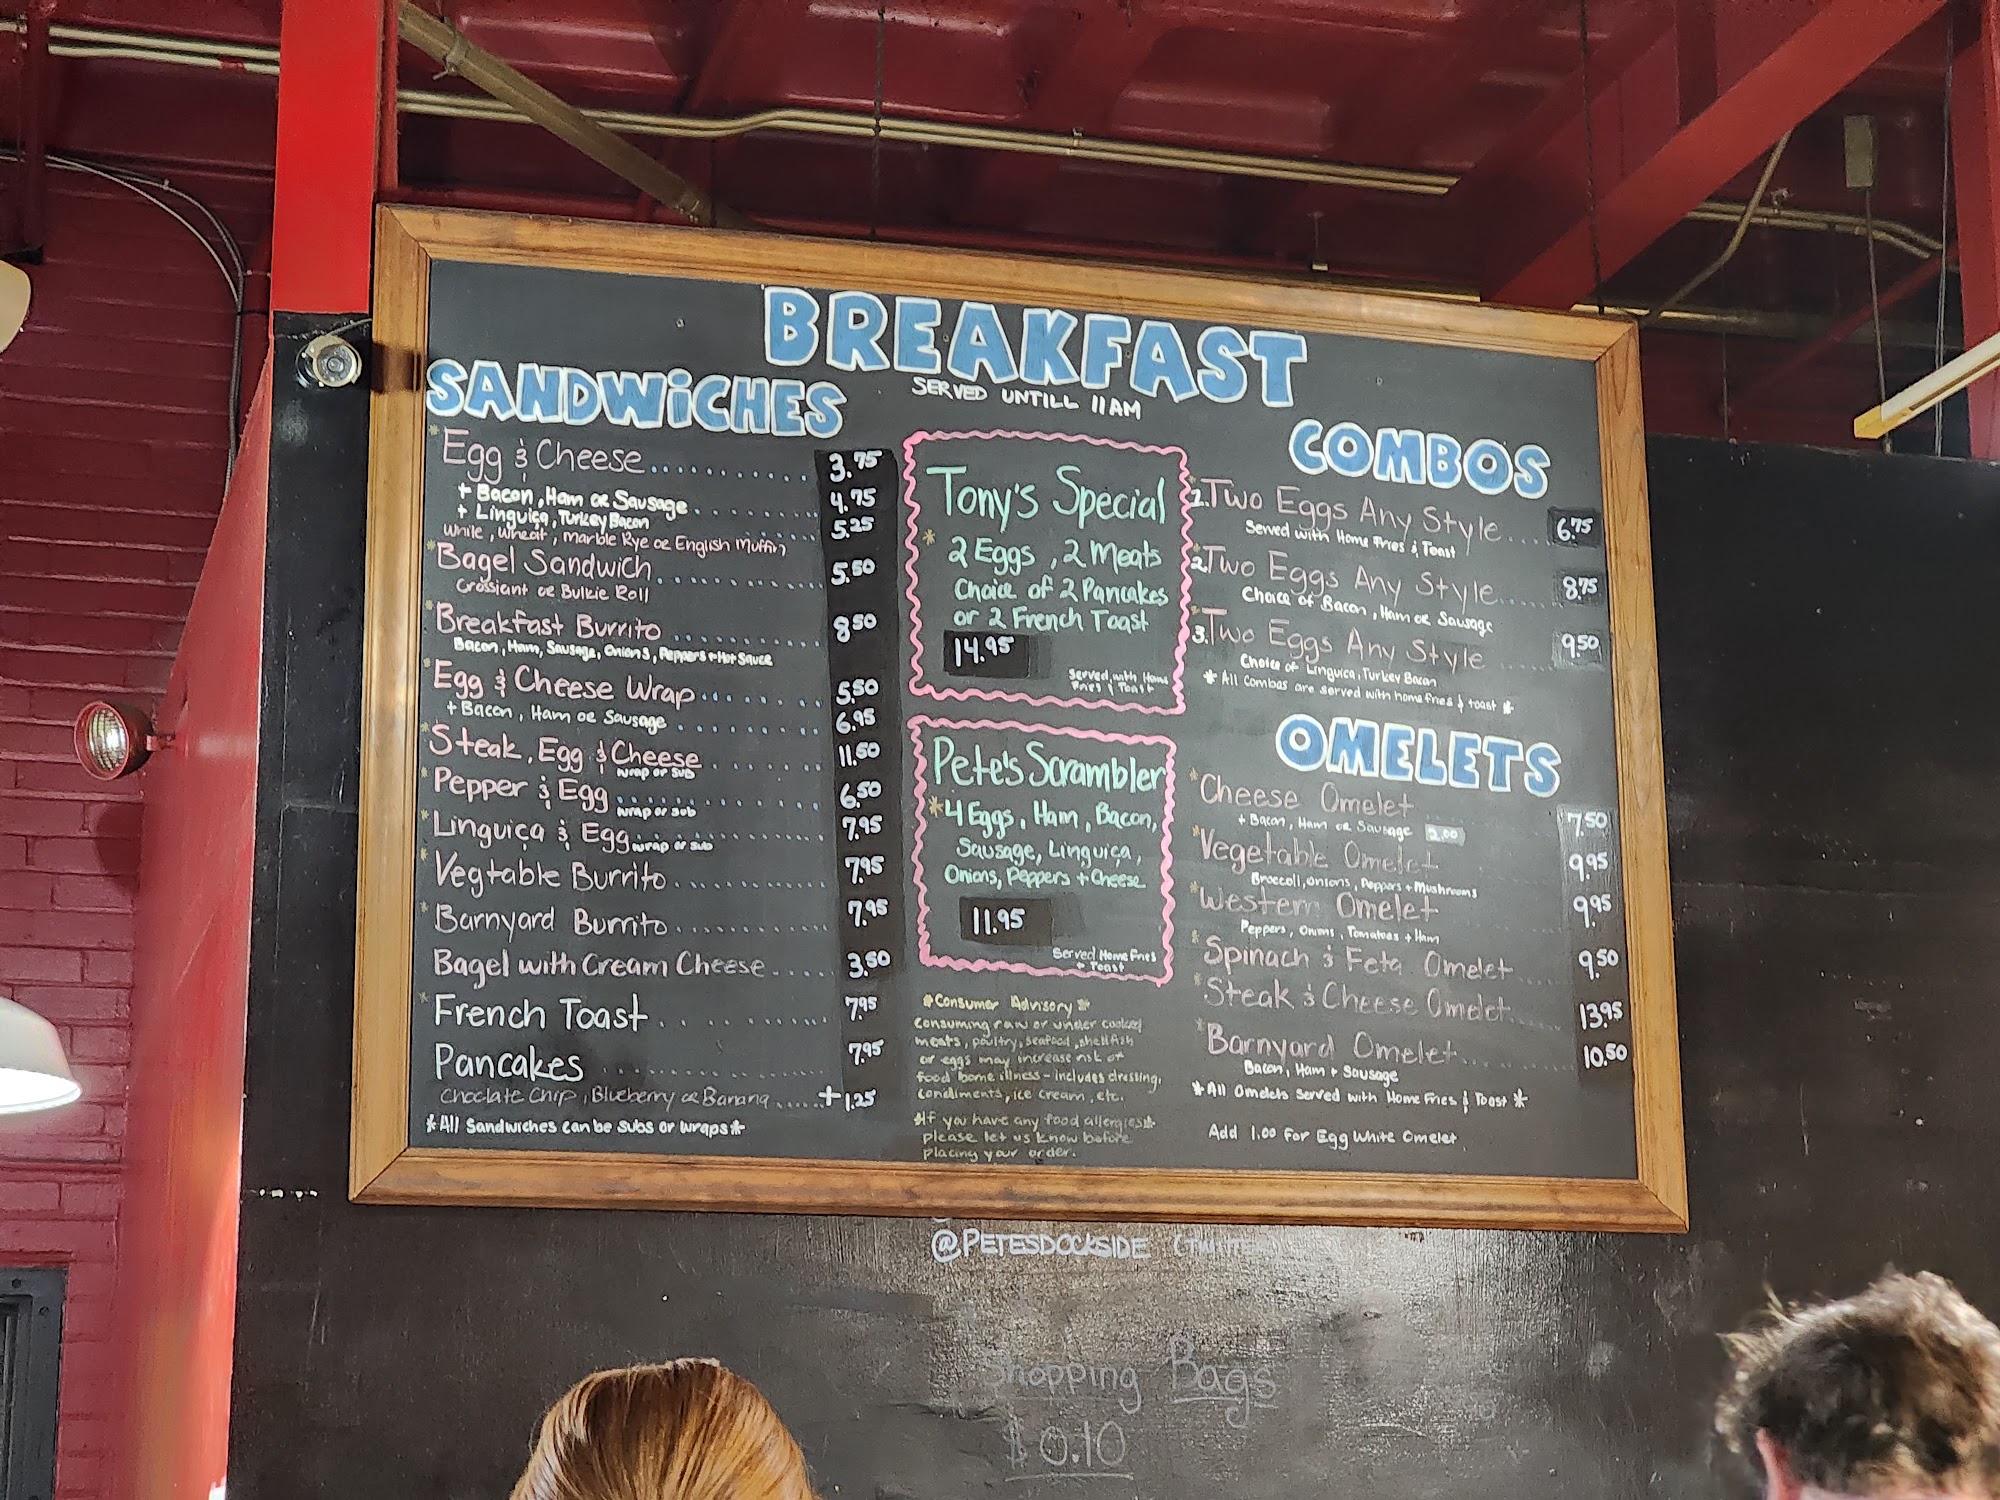 BREAKFAST
SERVED UNTILL 11AM
SANDWiCHES
*Egg & Cheese 3.75
+ Bacon, Ham or Sausage 4.75
+ Linguiça, Turkey Bacon 5.25
White, Wheat, Marble Rye or English Muffin
*Bagel Sandwich 5.50
Crossiant or Bulkie Roll
*Breakfast Burrito 8.50
Bacon, Ham, Sausage, Onions, Peppers + Hot Sauce
*Egg & Cheese Wrap 5.50
+ Bacon, Ham or Sausage 6.95
*Steak, Egg & Cheese 11.50
wrap or sub
*Pepper & Egg 6.50
wrap or sub
*Linguiça & Egg wrap or sub 7.95
*Vegtable Burrito 7.95
*Barnyard Burrito 7.95
Bagel with Cream Cheese 3.50
*French Toast 7.95
Pancakes 7.95
Choclate Chip, Blueberry or Banana +1.25
*All Sandwiches can be subs or wraps*
Tony's Special
*2 Eggs, 2 Meats
Choice of 2 Pancakes
or 2 French Toast
14.95
Served with Home
Fries & Toast
Pete's Scrambler
*4 Eggs, Ham, Bacon,
Sausage, Linguiça,
Onions, Peppers + Cheese
11.95
Served Home Fries
+ Toast
*Consumer Advisory*
Consuming raw or under cooked
meats, poultry, seafood, shellfish
or eggs may increase risk of
food borne illness - includes dressing,
condiments, ice cream, etc.
*If you have any food allergies*
please let us know before
placing your order.
COMBOS
*1. Two Eggs Any Style 6.75
Served with Home Fries & Toast
*2. Two Eggs Any Style 8.75
Choice of Bacon, Ham or Sausage
*3. Two Eggs Any Style 9.50
Choice of Linguica, Turkey Bacon
*All Combos are served with home fries & toast*
OMELETS
*Cheese Omelet 7.50
+ Bacon, Ham or Sausage 2.00
*Vegetable Omelet 9.95
Broccoli, onions, Peppers + Mushrooms
*Western Omelet 9.95
Peppers, Onions, Tomatoes + Ham
*Spinach & Feta Omelet 9.50
*Steak & Cheese Omelet 13.95
*Barnyard Omelet 10.50
Bacon, Ham + Sausage
*All Omelets Served with Home Fries & Toast*
Add 1.00 For Egg White Omelet
@PETESDOCKSIDE
Shopping Bags
$0.10